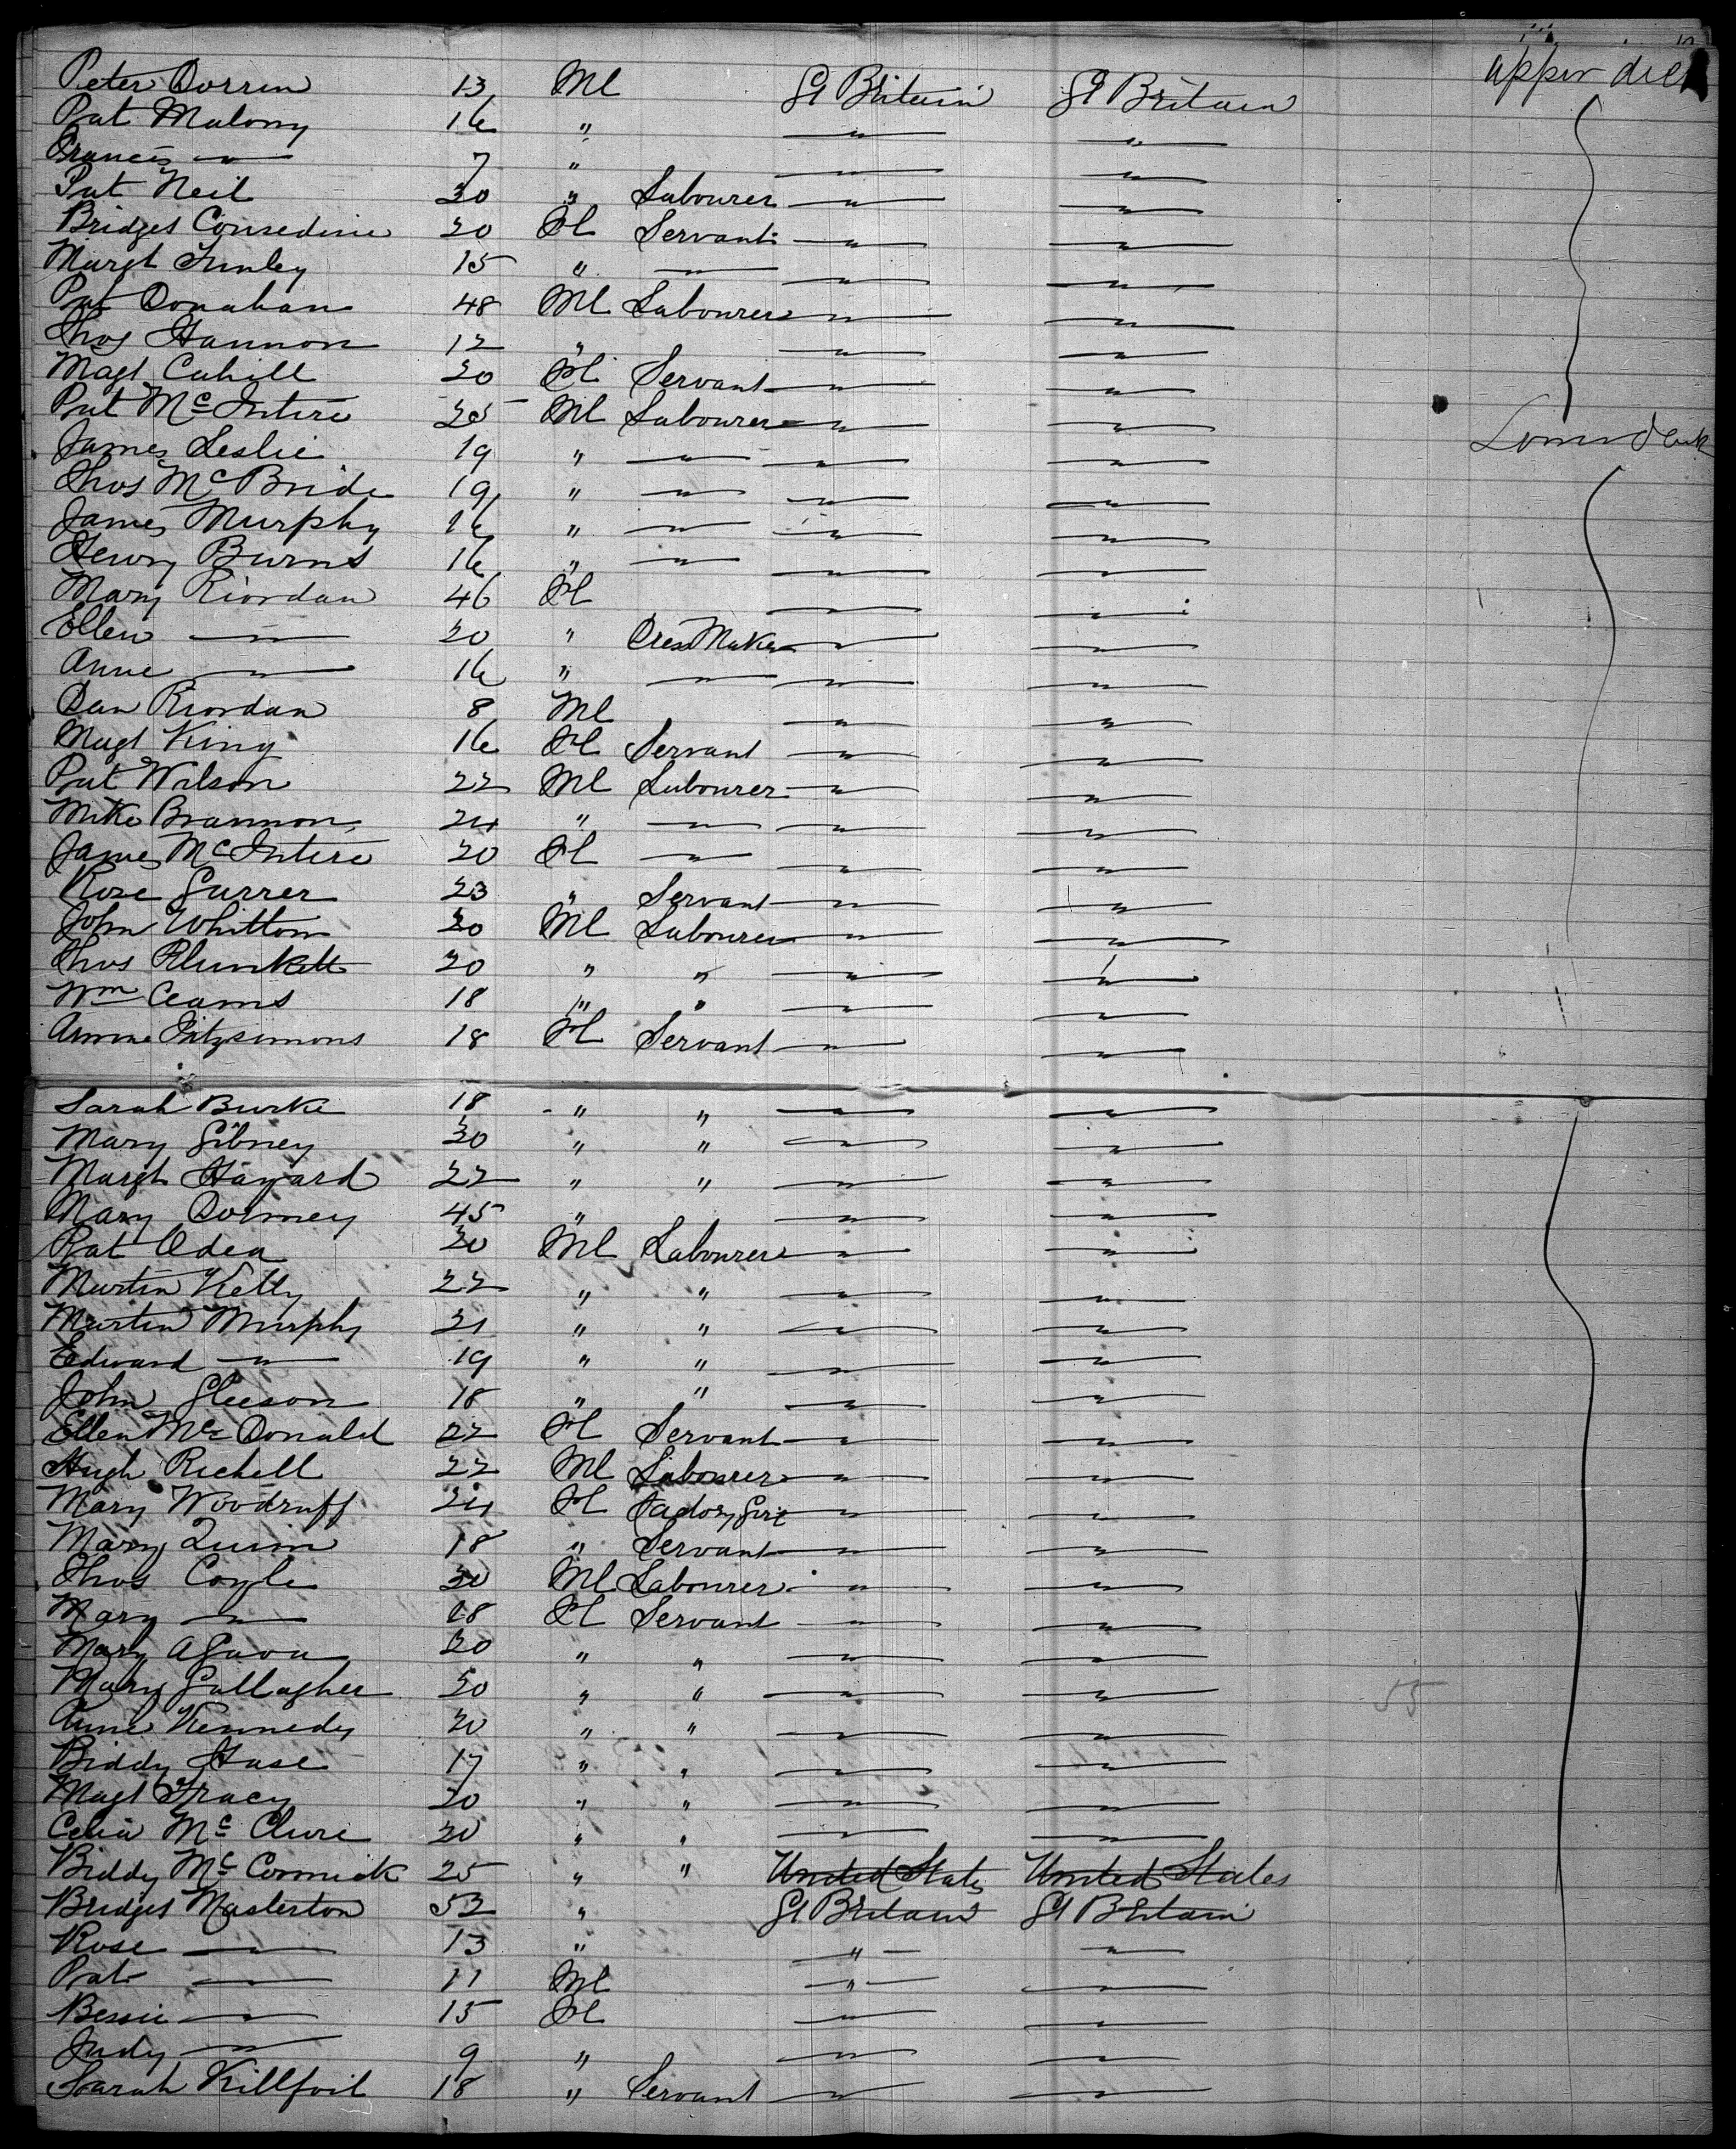 upper deck
Peter Dorrin 13 Ml Gt Britain Gt Britain
Pat Malony 16 " " "
Francis " 7 " " "
Pat Neil 30 " Labourer " "
Bridget Consedine 20 Fl Servant " "
Margt Finley 15 " " " "
Pat Donahan 48 Ml Labourer " "
Thos Hannon 12 " " "
Magt Cahill 20 Fl Servant " "
Pat McIntire 25 Ml Labourer " "
Lower deck
James Leslie 19 " " " "
Thos McBride 19 " " " "
James Murphy 16 " " " "
Henry Burns 16 " " " "
Mary Riordan 46 Fl " "
Ellen " 20 " Dress Maker " "
Anne " 16 " " " "
Dan Riordan 8 Ml " "
Magt King 16 Fl Servant " "
Pat Wilson 22 Ml Labourer " "
Mike Brannon 24 " " " "
James McIntire 20 Fl " " "
Rose Garrer 23 " Servant " "
John Whitton 30 Ml Labourer " "
Thos Plunkett 20 " " " "
Wm 18 " " " "
Annie Fitzsimons 18 Fl Servant " "
Sarah Burke 18 " " " "
Mary Gibney 30 " " " "
Margt Hayard 22 " " " "
Mary Dorney 45 " " "
Pat Odea 30 Ml Labourer " "
Martin Kelly 22 " " " "
Martin Murphy 21 " " " "
Edward " 19 " " " "
John Gleeson 18 " " " "
Ellen McDonald 22 Fl Servant " "
Hugh Richell 22 Ml Labourer " "
Mary Woodruff 24 Fl Factory Girl " "
Mary Quinn 18 " Servant " "
Thos Coyle 30 Ml Labourer " "
Mary " 18 Fl Servant " "
Mary 20 " " " "
Mary Gallagher 50 " " " " 55
Anne Kennedy 20 " " " "
Biddy Hase 17 " " " "
Magt Tracy 20 " " " "
Celia McClure 20 " " " "
Biddy McCormick 25 " " United States United States
Bridget Masterton 52 " Gt Britain Gt Britain
Rose " 13 " " "
Pat " 11 Ml " "
Bessie " 15 Fl " "
Judy " 9 " " "
Sarah Killfoil 18 " Servant " "